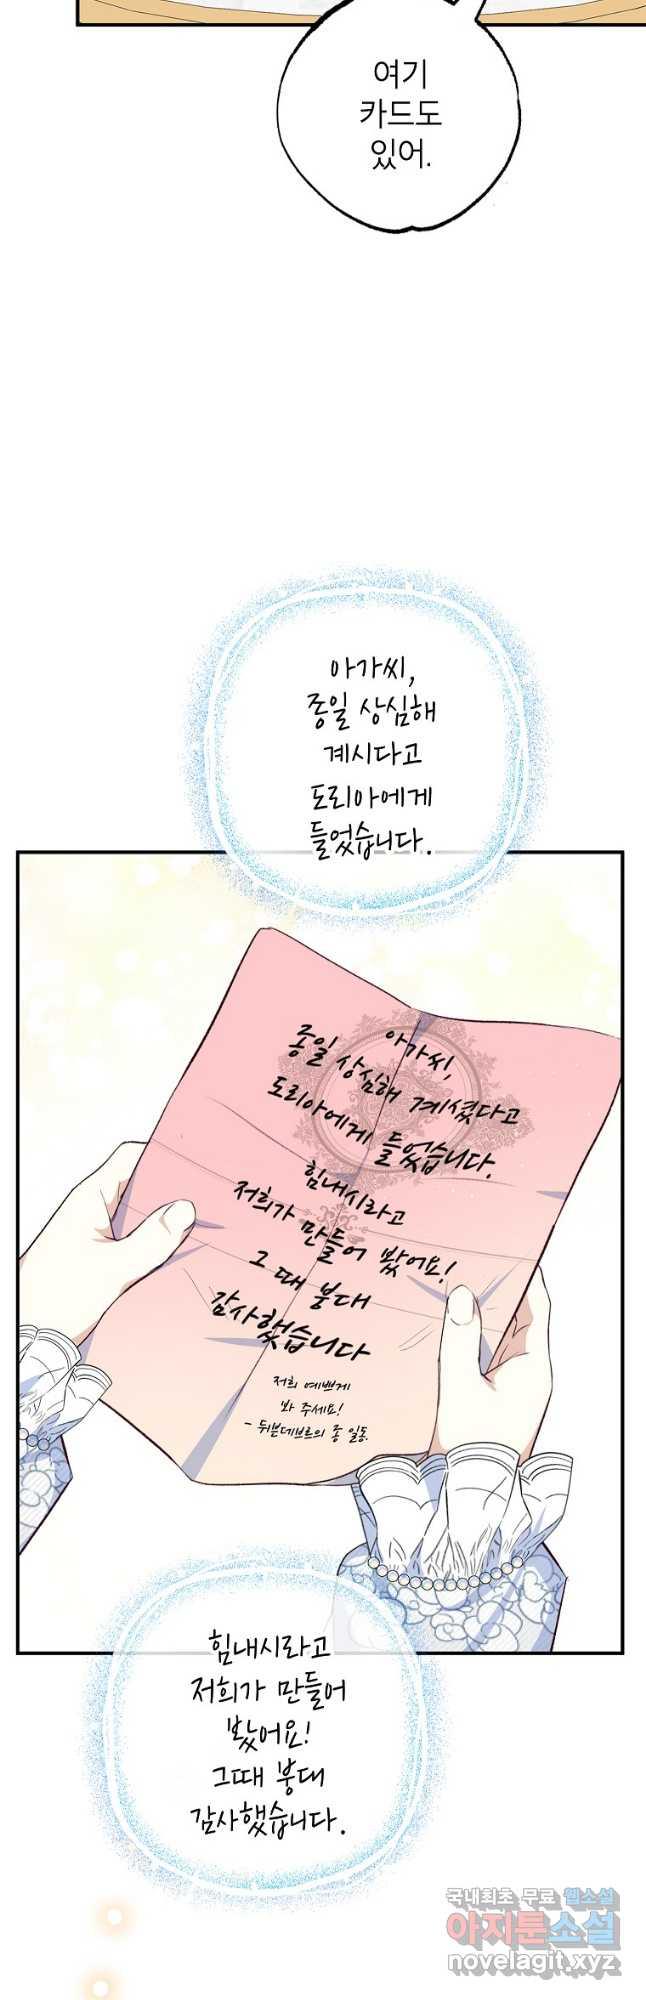 여기
카드도
있어.
아가씨,
종일 상심해
계시다고
도리아에게
들었습니다.
아가씨,
종일 상심해 계셨다고
도리아에게 들었습니다.
힘내시라고
저희가 만들어 봤어요!
그 때 붕대
감사했습니다
저희 예쁘게
봐 주세요!
- 뒤븐데브르의 종 일동.
힘내시라고
저희가 만들어
봤어요!
그때 붕대
감사했습니다.
국내최초 무료 웹소설
아지툰소설
novelagit.xyz